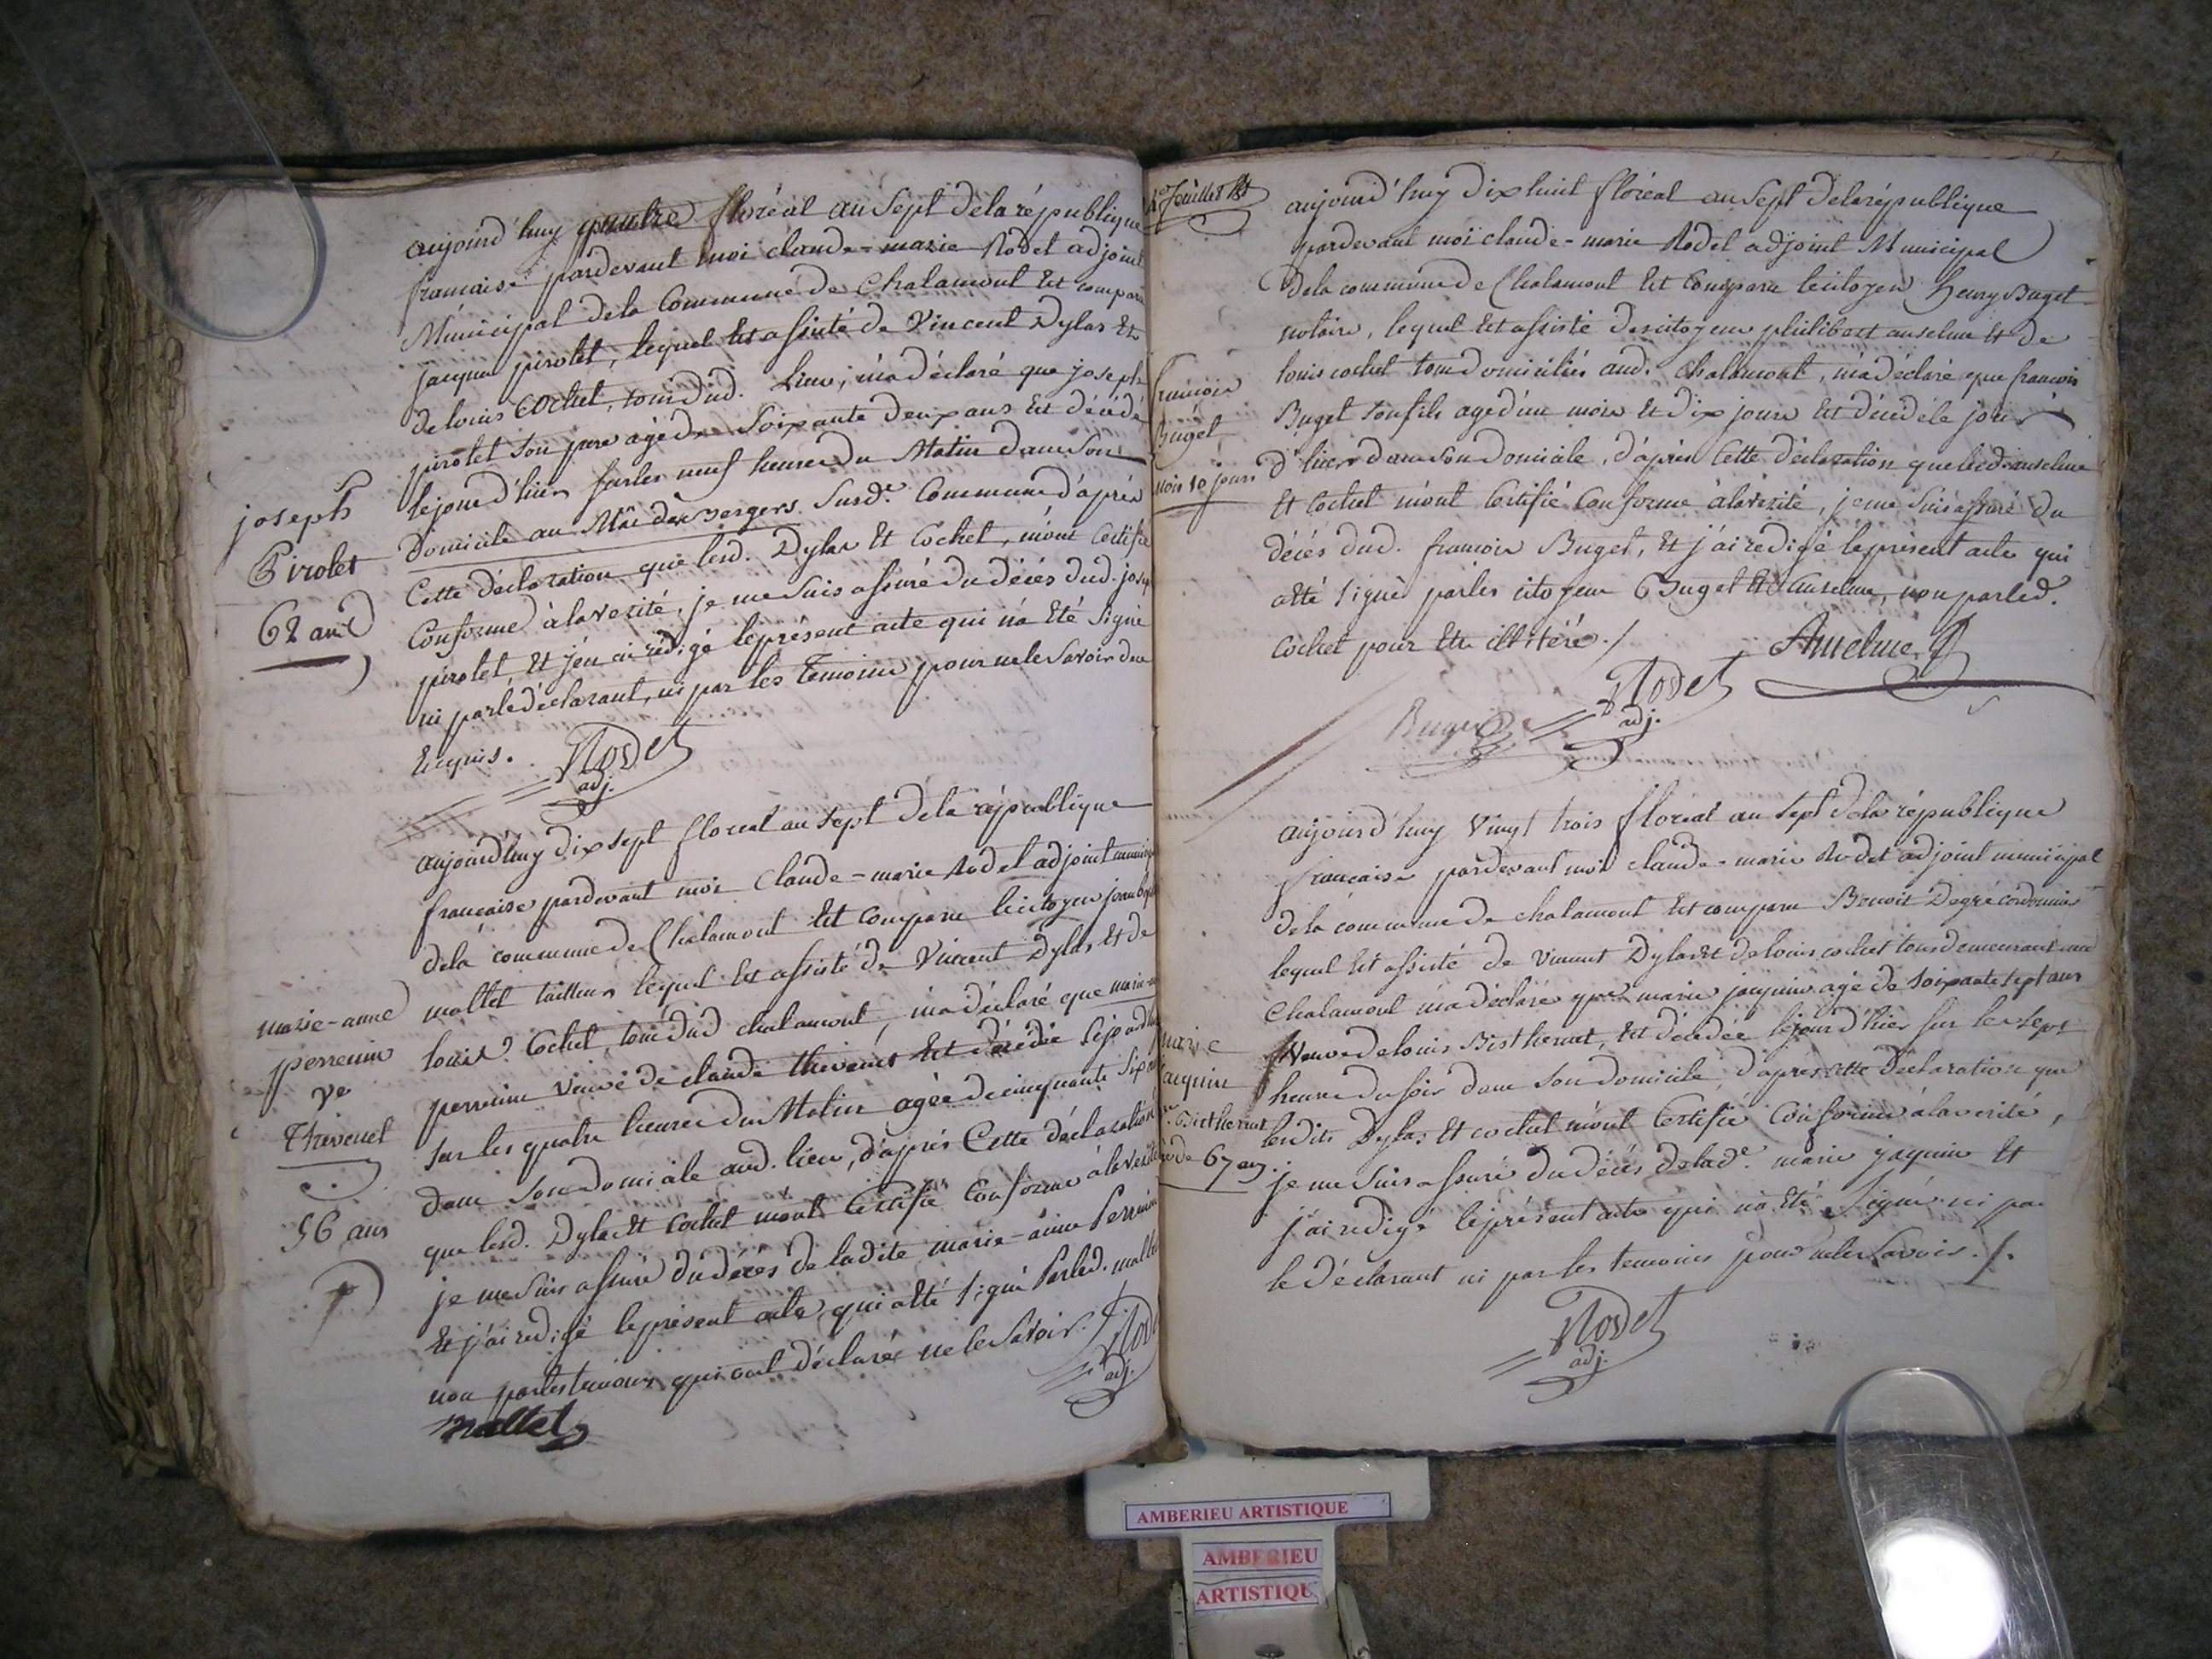 aujourd'huy quatre floréal an sept de la république
francaise pardevant moi claude-marie Rodet adjoint
Municipal de la Commune de Chalamont Est comparu
jacques pirolet, lequel Est assisté de Vincent Dylas Et
de louis Cochet, tous dud. Lieu, m'a déclaré que joseph
pirolet son pere agé de Soixante deux ans Est décédé
le jour d'hier sur les neuf heures du Matin dans son
Domicile au Mas des Bergers susd.e Commune d'après
Cette déclaration que lesd. Dylas Et Cochet, m'ont Certifié
Conforme à la verité, je me suis assuré du décés dud. joseph
pirolet Et j'en ai rédigé le présent acte qui n'a Eté signé
ni par le déclarant, ni par les Temoins pour ne le savoir de ce
Enquis. Rodet
adj.
joseph
Pirolet
62 ans
aujourd'huy dix sept floréal an sept de la république
française pardevant moi Claude-marie Rodet adjoint
de la commune de Chalamont Est comparu le citoyen
mallet tailleur lequel Est assisté de Vincent Dylas Et de
louis Cochet, tous dud chalamont, m'a déclaré que
perrenin veuve de claude thevenet Est décédée
sur les quatre heures du Matin agée de cinquante six
dans son domicile aud. lieu, d'après Cette déclaration
que lesd. Dylas Et Cochet m'ont Certifié Conforme à la verité
je me suis assuré du décés de ladite marie-anne Perrenin
Et j'ai redigé le présent acte, qui a Eté signé par led. mallet
non par les temoins qui ont déclaré ne le savoir. /. Rodet
adj.
mallet
marie-anne
perrenin
ve
Thevenet
56 ans
feuillet
aujourd'huy dix huit floréal an sept de la république
pardevant moi claude-marie Rodet adjoint Municipal
de la commune de Chalamont Est comparu le citoyen henry Buget
notaire, lequel Est assisté des citoyens philibert anselme Et de
louis cochet tous domiciliés aud. Chalamont, m'a déclaré que francois
Buget son fils agé d'un mois Et dix jours Est décédé le jour
d'hier dans son Domicile, d'après Cette déclaration que lesd. anselme
Et Cochet m'ont Certifié Conforme à la verité, je me suis assuré du
décés dud. francois Buget, Et j'ai redigé le présent acte qui
a Eté signé par les citoyens Buget Et Anselme, non par led.
Cochet pour Etre illitéré. /
Anselme
Rodet
adj.
Buget
francois
Buget
mois 10 jours
aujourd'huy vingt trois floréal an sept de la république
francaise pardevant moi claude-marie Rodet adjoint municipal
de la commune de chalamont Est comparu Benoit Degré cordonnier
lequel Est assisté de Vincent Dylas Et de louis cochet tous demeurant aud
Chalamont m'a déclaré que marie jaquin agé de soixante sept ans
Veuve de louis Bisthernet, Est décédée le jour d'hier sur les sept
heures du soir dans son domicile, d'après cette déclaration que
lesdits Dylas Et cochet m'ont Certifié Conforme à la verité,
je me suis assuré du décés de lad.e marie jaquin Et
j'ai redigé le présent acte qui n'a Eté signé ni par
le déclarant ni par les temoins pour ne le savoir. /.
Rodet
adj.
marie
jaquin
67 ans.
AMBERIEU ARTISTIQUE
AMBERIEU
ARTISTIQU